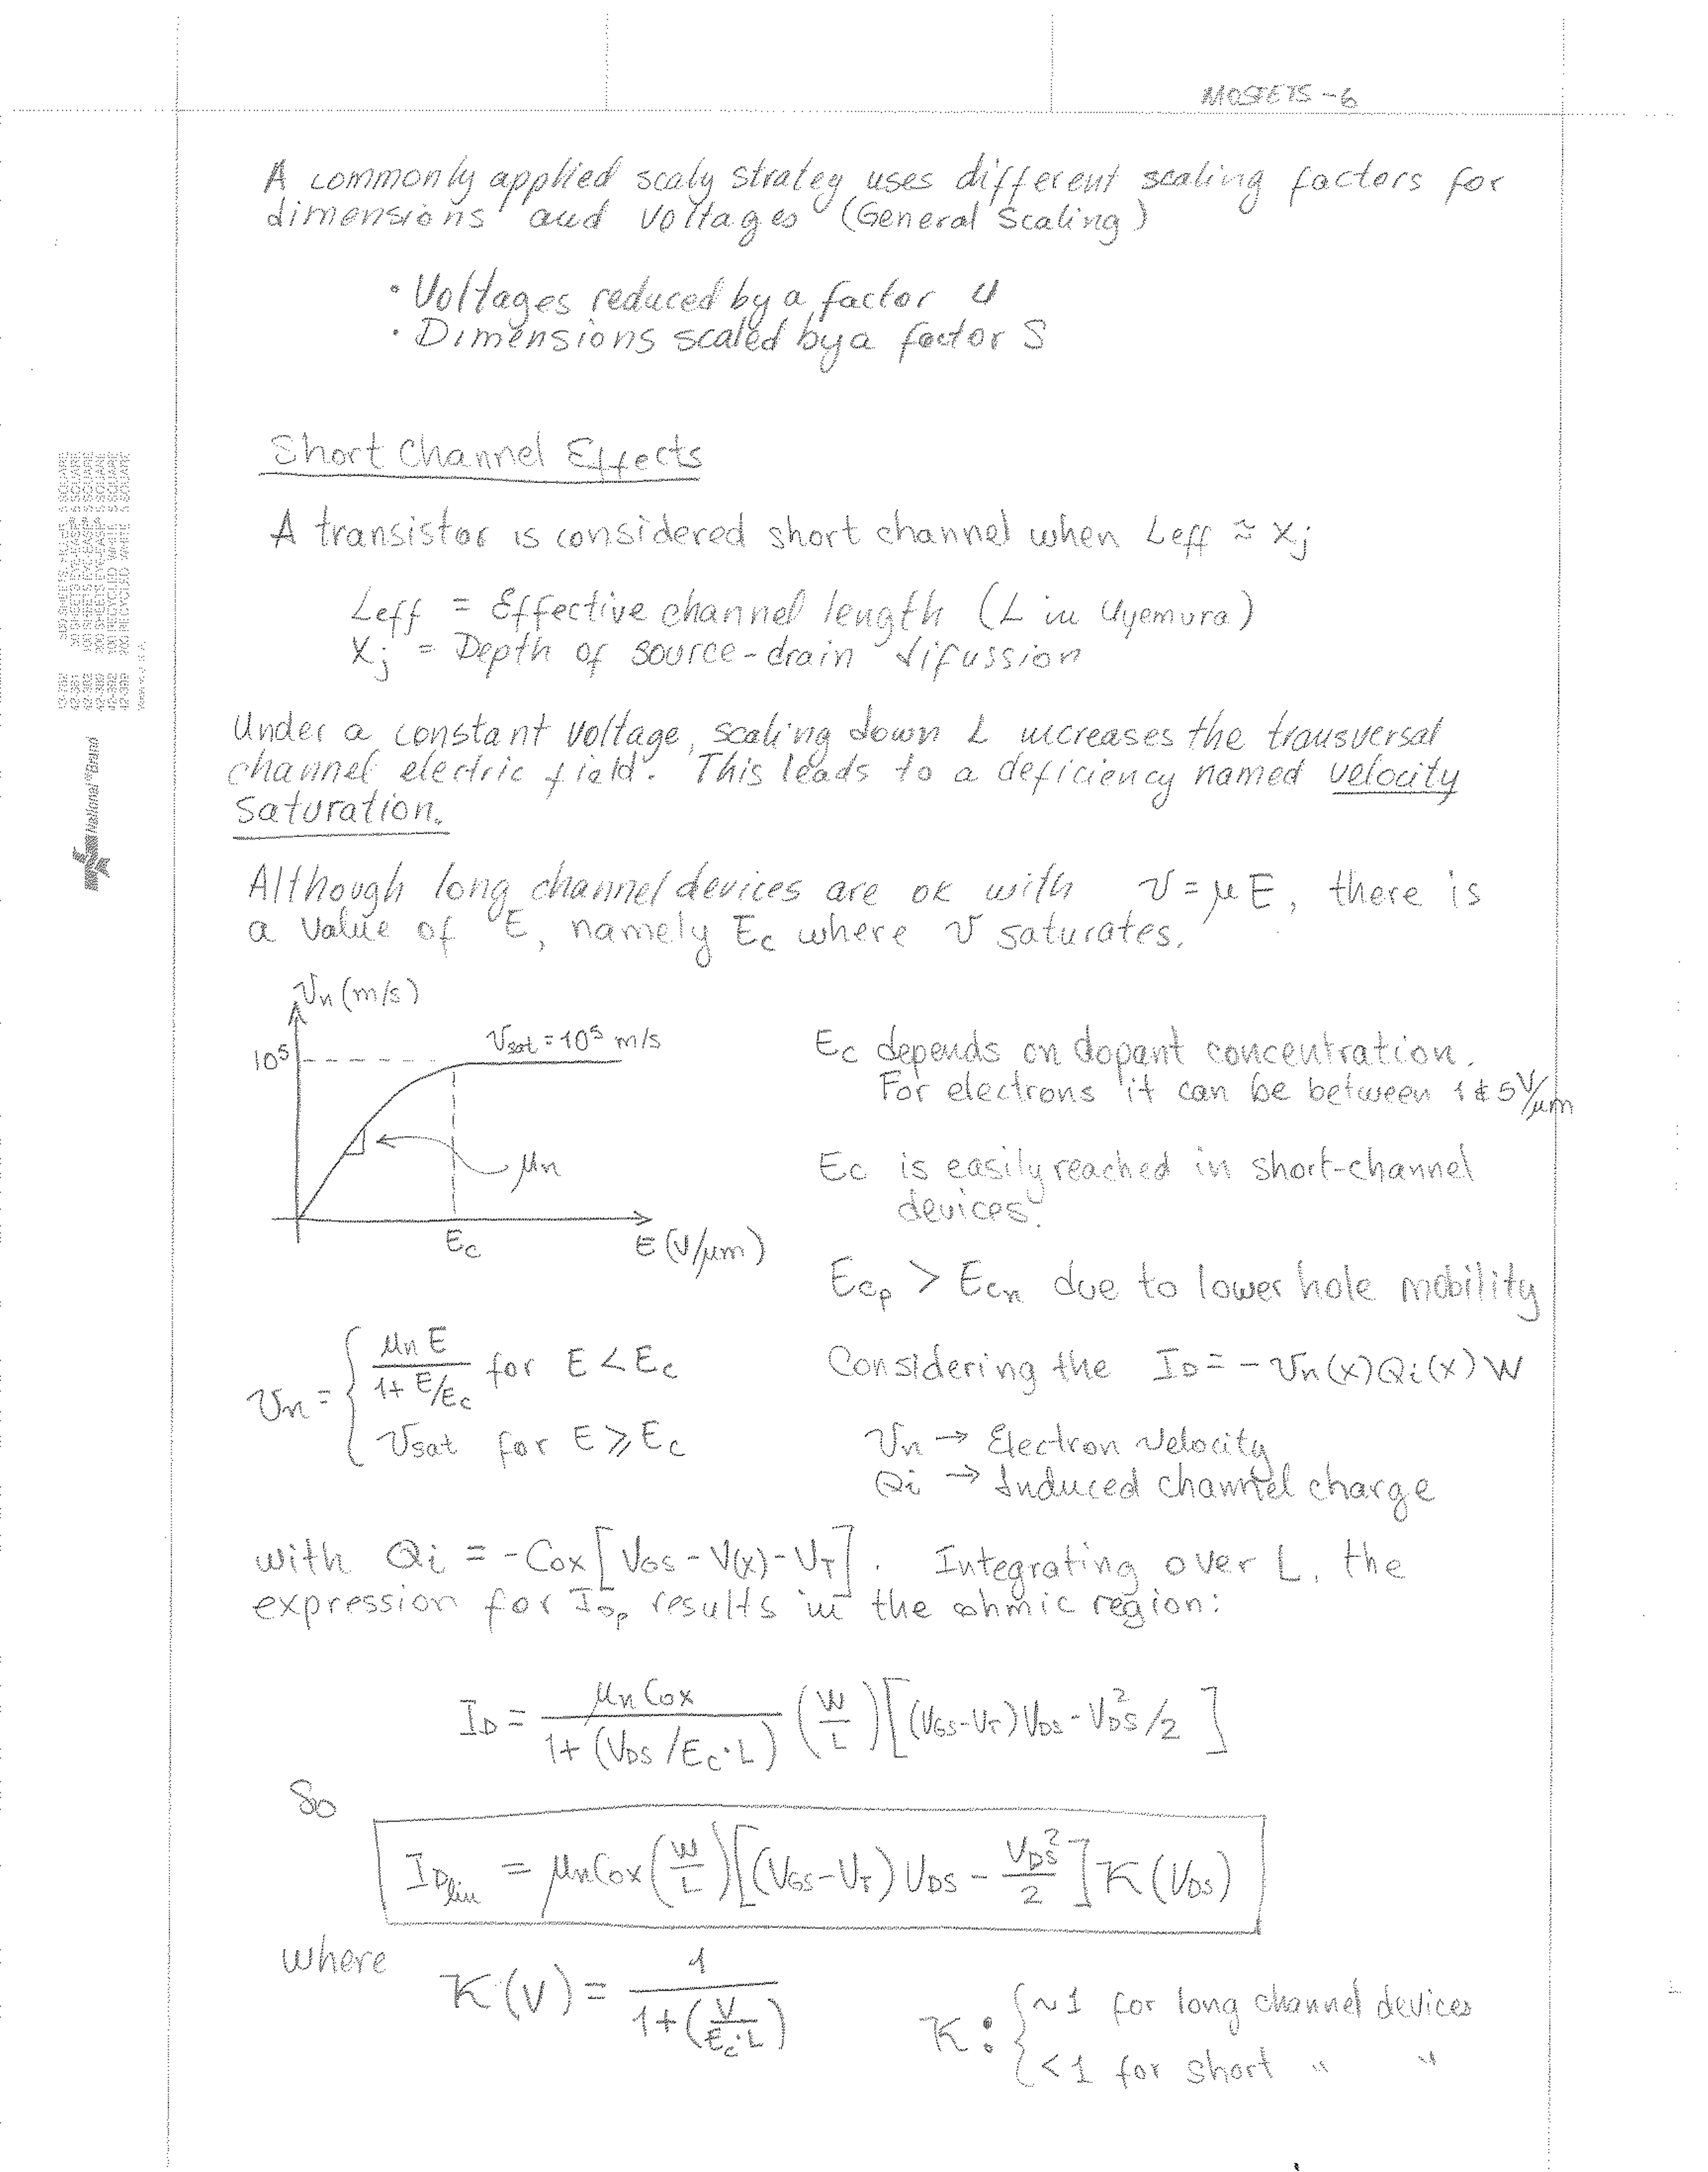 MOSFETS - 6
A commonly applied scaly strateg uses different scaling factors for
dimensions and voltages (General Scaling)
• Voltages reduced by a factor U
• Dimensions scaled by a factor S
Short Channel Effects
A transistor is considered short channel when Leff ≈ Xj
Leff = Effective channel length (L in Uyemura)
Xj = Depth of source-drain difussion
Under a constant voltage, scaling down L increases the transversal
channel electric field. This leads to a deficiency named velocity
saturation.
Although long channel devices are ok with v = μE, there is
a value of E, namely Ec where v saturates.
vn (m/s)
10^5
vsat = 10^5 m/s
μn
Ec
E (V/μm)
Ec depends on dopant concentration.
For electrons it can be between 1 & 5 V/μm
Ec is easily reached in short-channel
devices.
Ecp > Ecn due to lower hole mobility
vn = { μn E / (1 + E/Ec) for E < Ec
vsat for E ≥ Ec
Considering the ID = - vn(x) Qi(x) W
vn → Electron velocity
Qi → Induced channel charge
with Qi = -Cox [VGS - V(x) - VT]. Integrating over L, the
expression for IDp results in the ohmic region:
ID = μn Cox / (1 + (VDS / Ec·L)) (W/L) [(VGS - VT) VDS - VDS^2/2]
So
IDlin = μn Cox (W/L) [(VGS - VT) VDS - VDS^2/2] K(VDS)
where
K(V) = 1 / (1 + (V/Ec·L))
K: { ~1 for long channel devices
<1 for short " "
National®Brand